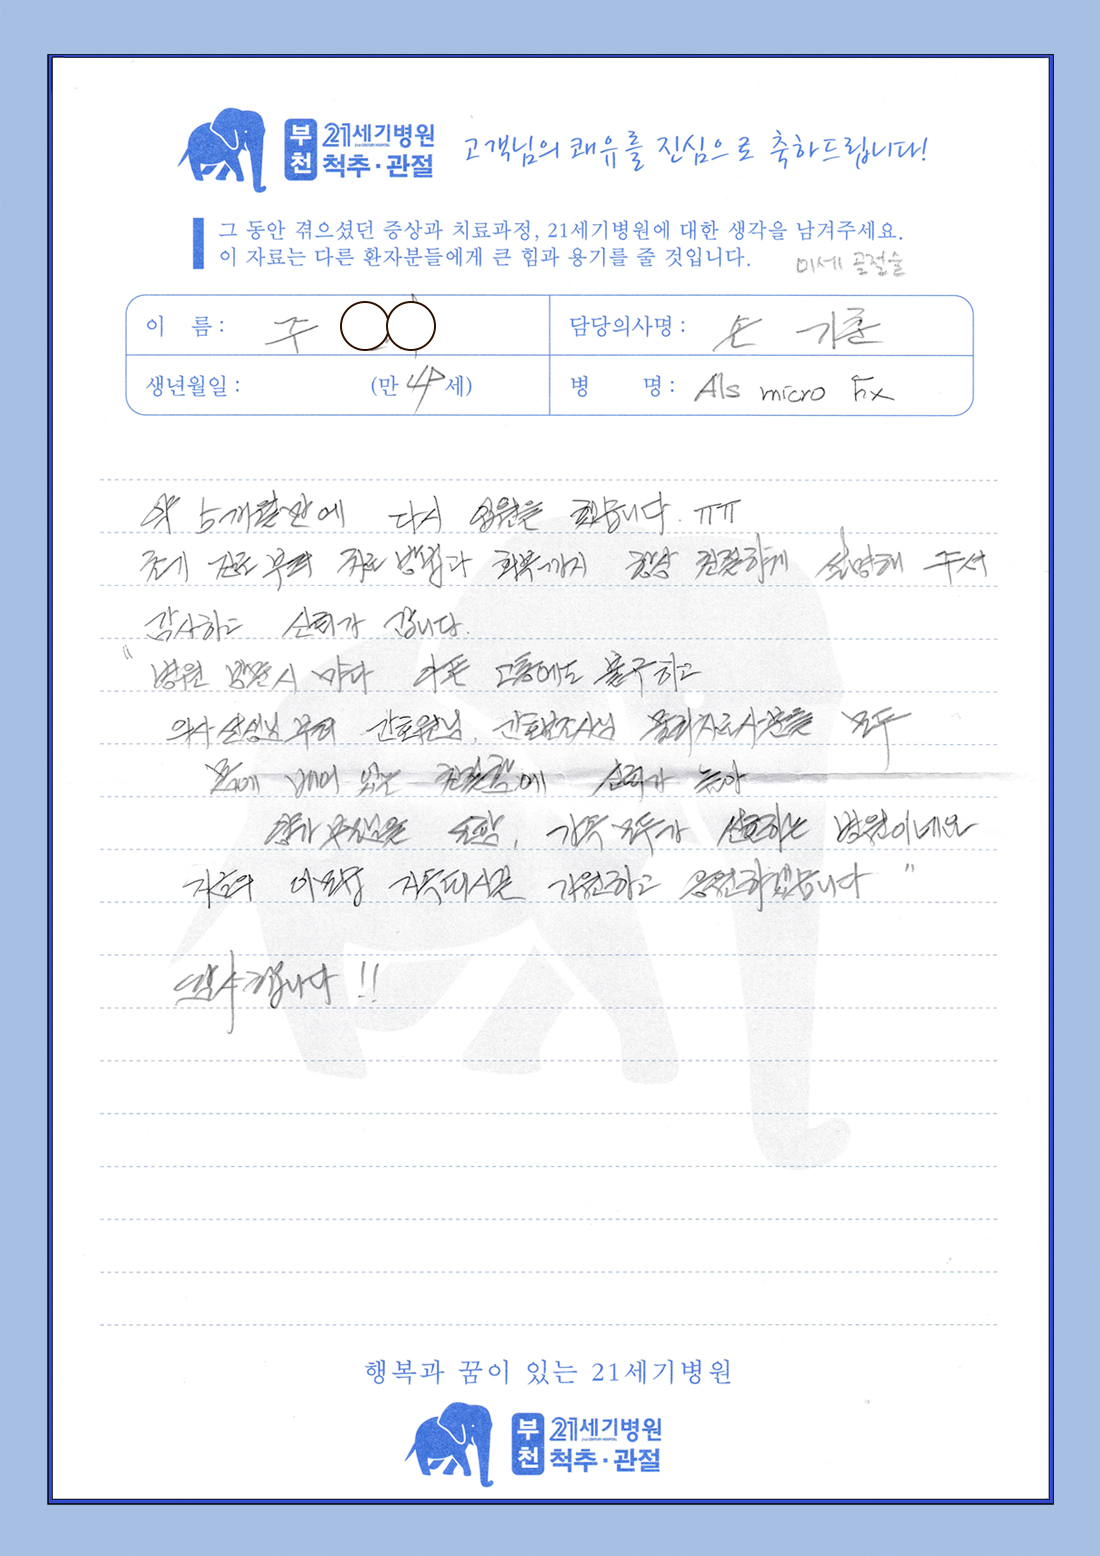 부천 21세기병원 척추·관절
고객님의 쾌유를 진심으로 축하드립니다!
그 동안 겪으셨던 증상과 치료과정, 21세기병원에 대한 생각을 남겨주세요.
이 자료는 다른 환자분들에게 큰 힘과 용기를 줄 것입니다.
미세 골절술
이 름 : 주
담당의사명 : 손 기준
생년월일 : (만 49 세)
병 명 : Als micro Fx
약 5개월만에 다시 입원을 했습니다. ㅠㅠ
초기 진료부터 치료방법과 회복까지 항상 친절하게 설명해 주셔
감사하고 신뢰가 갑니다.
"병원 방문시 마다 아픈 고통에도 불구하고
의사선생님부터 간호원님, 간호조사님 물리치료사분들 모두
몸에 베어 있는 친절함에 신뢰가 높아
부모님을 포함, 가족 모두가 선호하는 병원이네요
지금의 마음 지속되시길 기원하고 응원하겠습니다"
감사합니다!!
행복과 꿈이 있는 21세기병원
부천 21세기병원 척추·관절